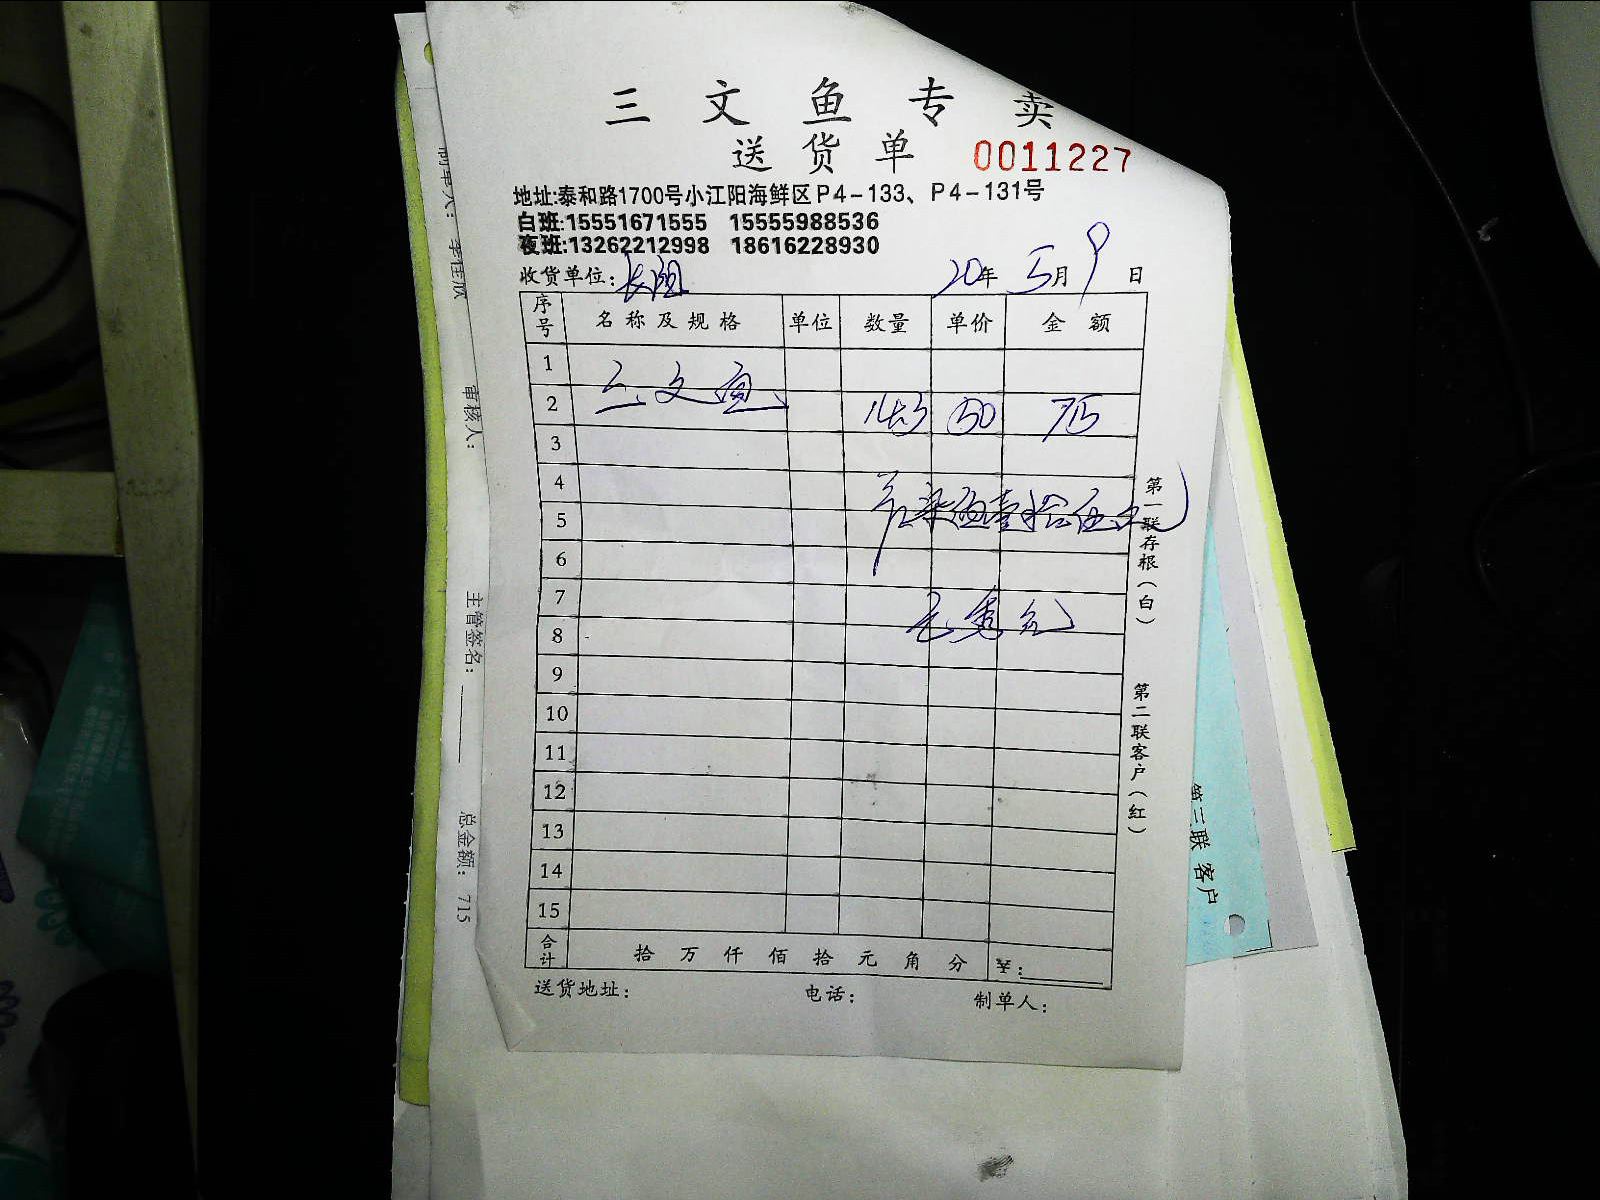 三文鱼专卖
送货单 0011227
地址:泰和路1700号小江阳海鲜区P4-133、P4-131号
白班:15551671555 15555988536
夜班:13262212998 18616228930
收货单位: 20年 5月 9日
序号 名称及规格 单位 数量 单价 金额
1 三文鱼
2 14.3 50 715
3
4
5 柒佰壹拾伍元
6
7
8
9
10
11
12
13
14
15
合计 拾 万 仟 佰 拾 元 角 分 ¥:
送货地址: 电话: 制单人:
第一联存根(白)
第二联客户(红)
第三联 客户
审核人:
主管签名:
总金额: 715